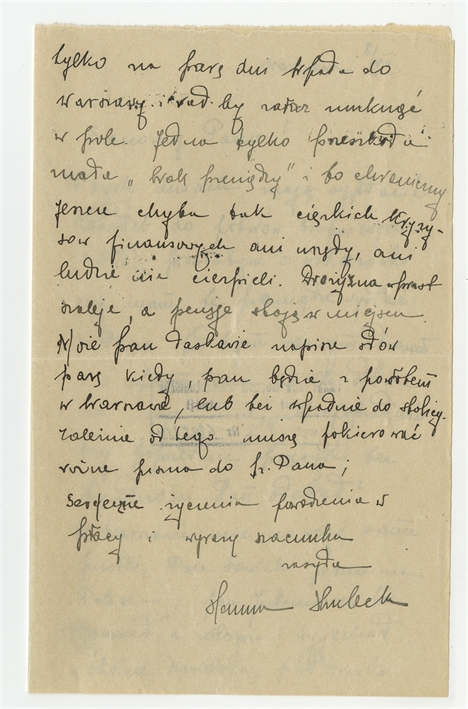 tylko na parę dni wpada do
Warszawy i rad by zaraz umknąć
w pole. Jedna tylko przeszkoda
mała „brak pieniędzy" i to chroniczny
Jeszcze chyba tak ciężkich kryzy-
sów finansowych ani urzędy, ani
ludzie nie cierpieli. Drożyzna wprost
szaleje, a pensje stoją w miejscu.
Niech Pan łaskawie napisze słów
parę kiedy, pan będzie z powrotem
w Warszawie, lub bei wpadnie do stolicy
zależnie od tego muszę pokierować
różne pisma do Sz. Pana;
Serdeczne życzenia powodzenia w
pracy i wyrazy szacunku
zasyła
Hanna